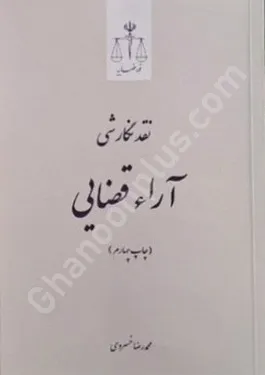 قوه قضاییه
نقد نگارشی
آراء قضایی
(چاپ چهارم)
محمدرضا خسروی
Ghanoonplus.com